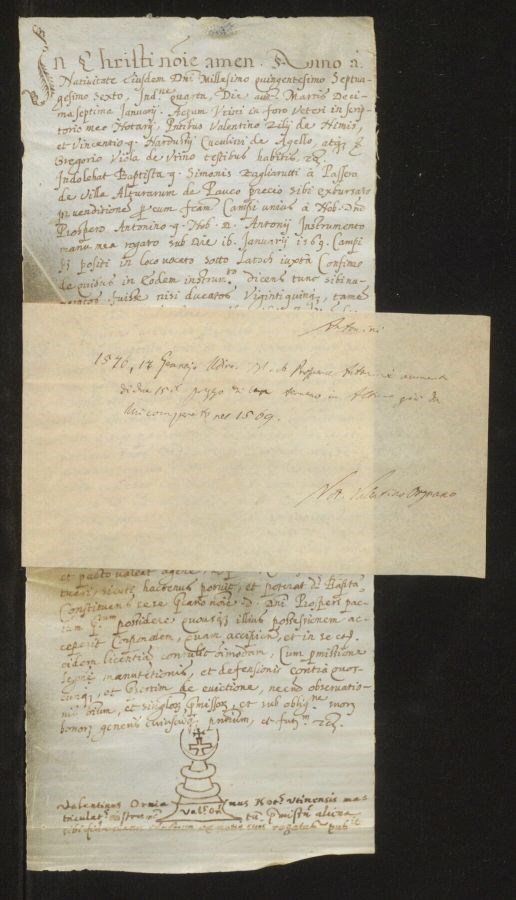 In Christi noie amen. Anno à
Nativitate Eiusdem Dni Millesimo quingentesimo Septua-
gesimo Sexto, Ind.ne quarta, Die Martis Deci-
ma septima Januarij. Actum Utini in foro Veteri in scrip-
torio mei Notarij, Pntibus Valentino Zilij de Himis,
et Vincentio q. Narduttij Cucultti de Agello, atq;
Gregorio Viola de Utino testibus habitis, &c.
Indolebat Baptista q. Simonis Pagliarutti à Passera
de Villa Alturarum de Pauco precio sibi exbursato
venditionem fcam Campi unius à Nob. Dno
Prospero Antonino q. Nob. D. Antonij Instrumento
manu mea rogato sub Die 16. Januarij 1569. Campi
positi in loco vocato sotto Latoch iuxta Confines
de quibus in Eodem instrum.to dicens tunc sibi nu-
meratos fuisse nisi ducatos Viginti quinq;, tame
Antonini
1576, 17 Gennajo Udine. Nob. Prospero Antonini aumenta
di duc 15 il prezzo di un terreno in Alture già da
lui comperato nel 1569.
Not. Valentino Orgnano
et pacto valeat agere,
tueri, sicuti hactenus potuit, et poterat D. Bapta.
Constituens se se noie D. Dni Prosperi pac-
tam possidere quousq; illius possessionem ac-
ceperit Corporalem, quam accipiendi, et in se
eidem licentiam contulit omnimodam, Cum pmissione
manutetionis, et defensionis contrà quos-
cunq;, et Pertim de evictione, necno observatio-
ni oium, et singlor pmissor, et sub oblig.ne
bonor generis cuiuscuq. pntium, et fut.m &c.
Val. Or.
Valentinus Ornia nus Not.s Utinensis ma
triculat.
rogatus